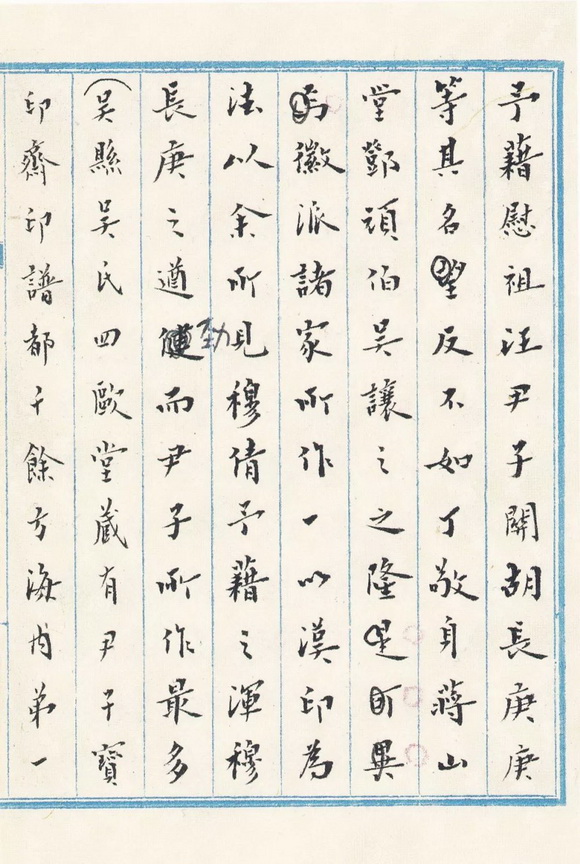 予藉慰祖汪尹子關胡長庚庚
等其名望反不如丁敬身蔣山
堂鄧頑伯吳讓之之隆是可異
為徽派諸家所作一以漢印為
法以余所見穆倩予藉之渾穆
長庚之遒勁而尹子所作最多
(吳縣吳氏四歐堂藏有尹子寶
印齋印譜都千餘方海內弟一